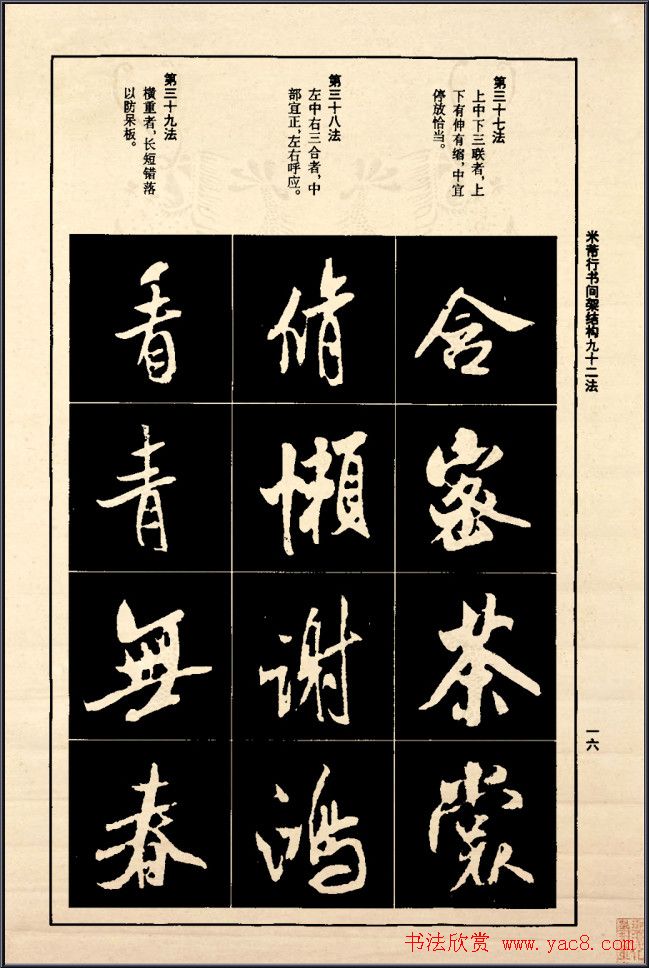 米芾行书间架结构九十二法
第三十七法
上中下三联者，上
下有伸有缩，中宜
停放恰当。
含
密
茶
裳
第三十八法
左中右三合者，中
部宜正，左右呼应。
脩
懒
谢
鸿
第三十九法
横重者，长短错落
以防呆板。
看
青
無
春
一六
书法欣赏 www.yac8.com